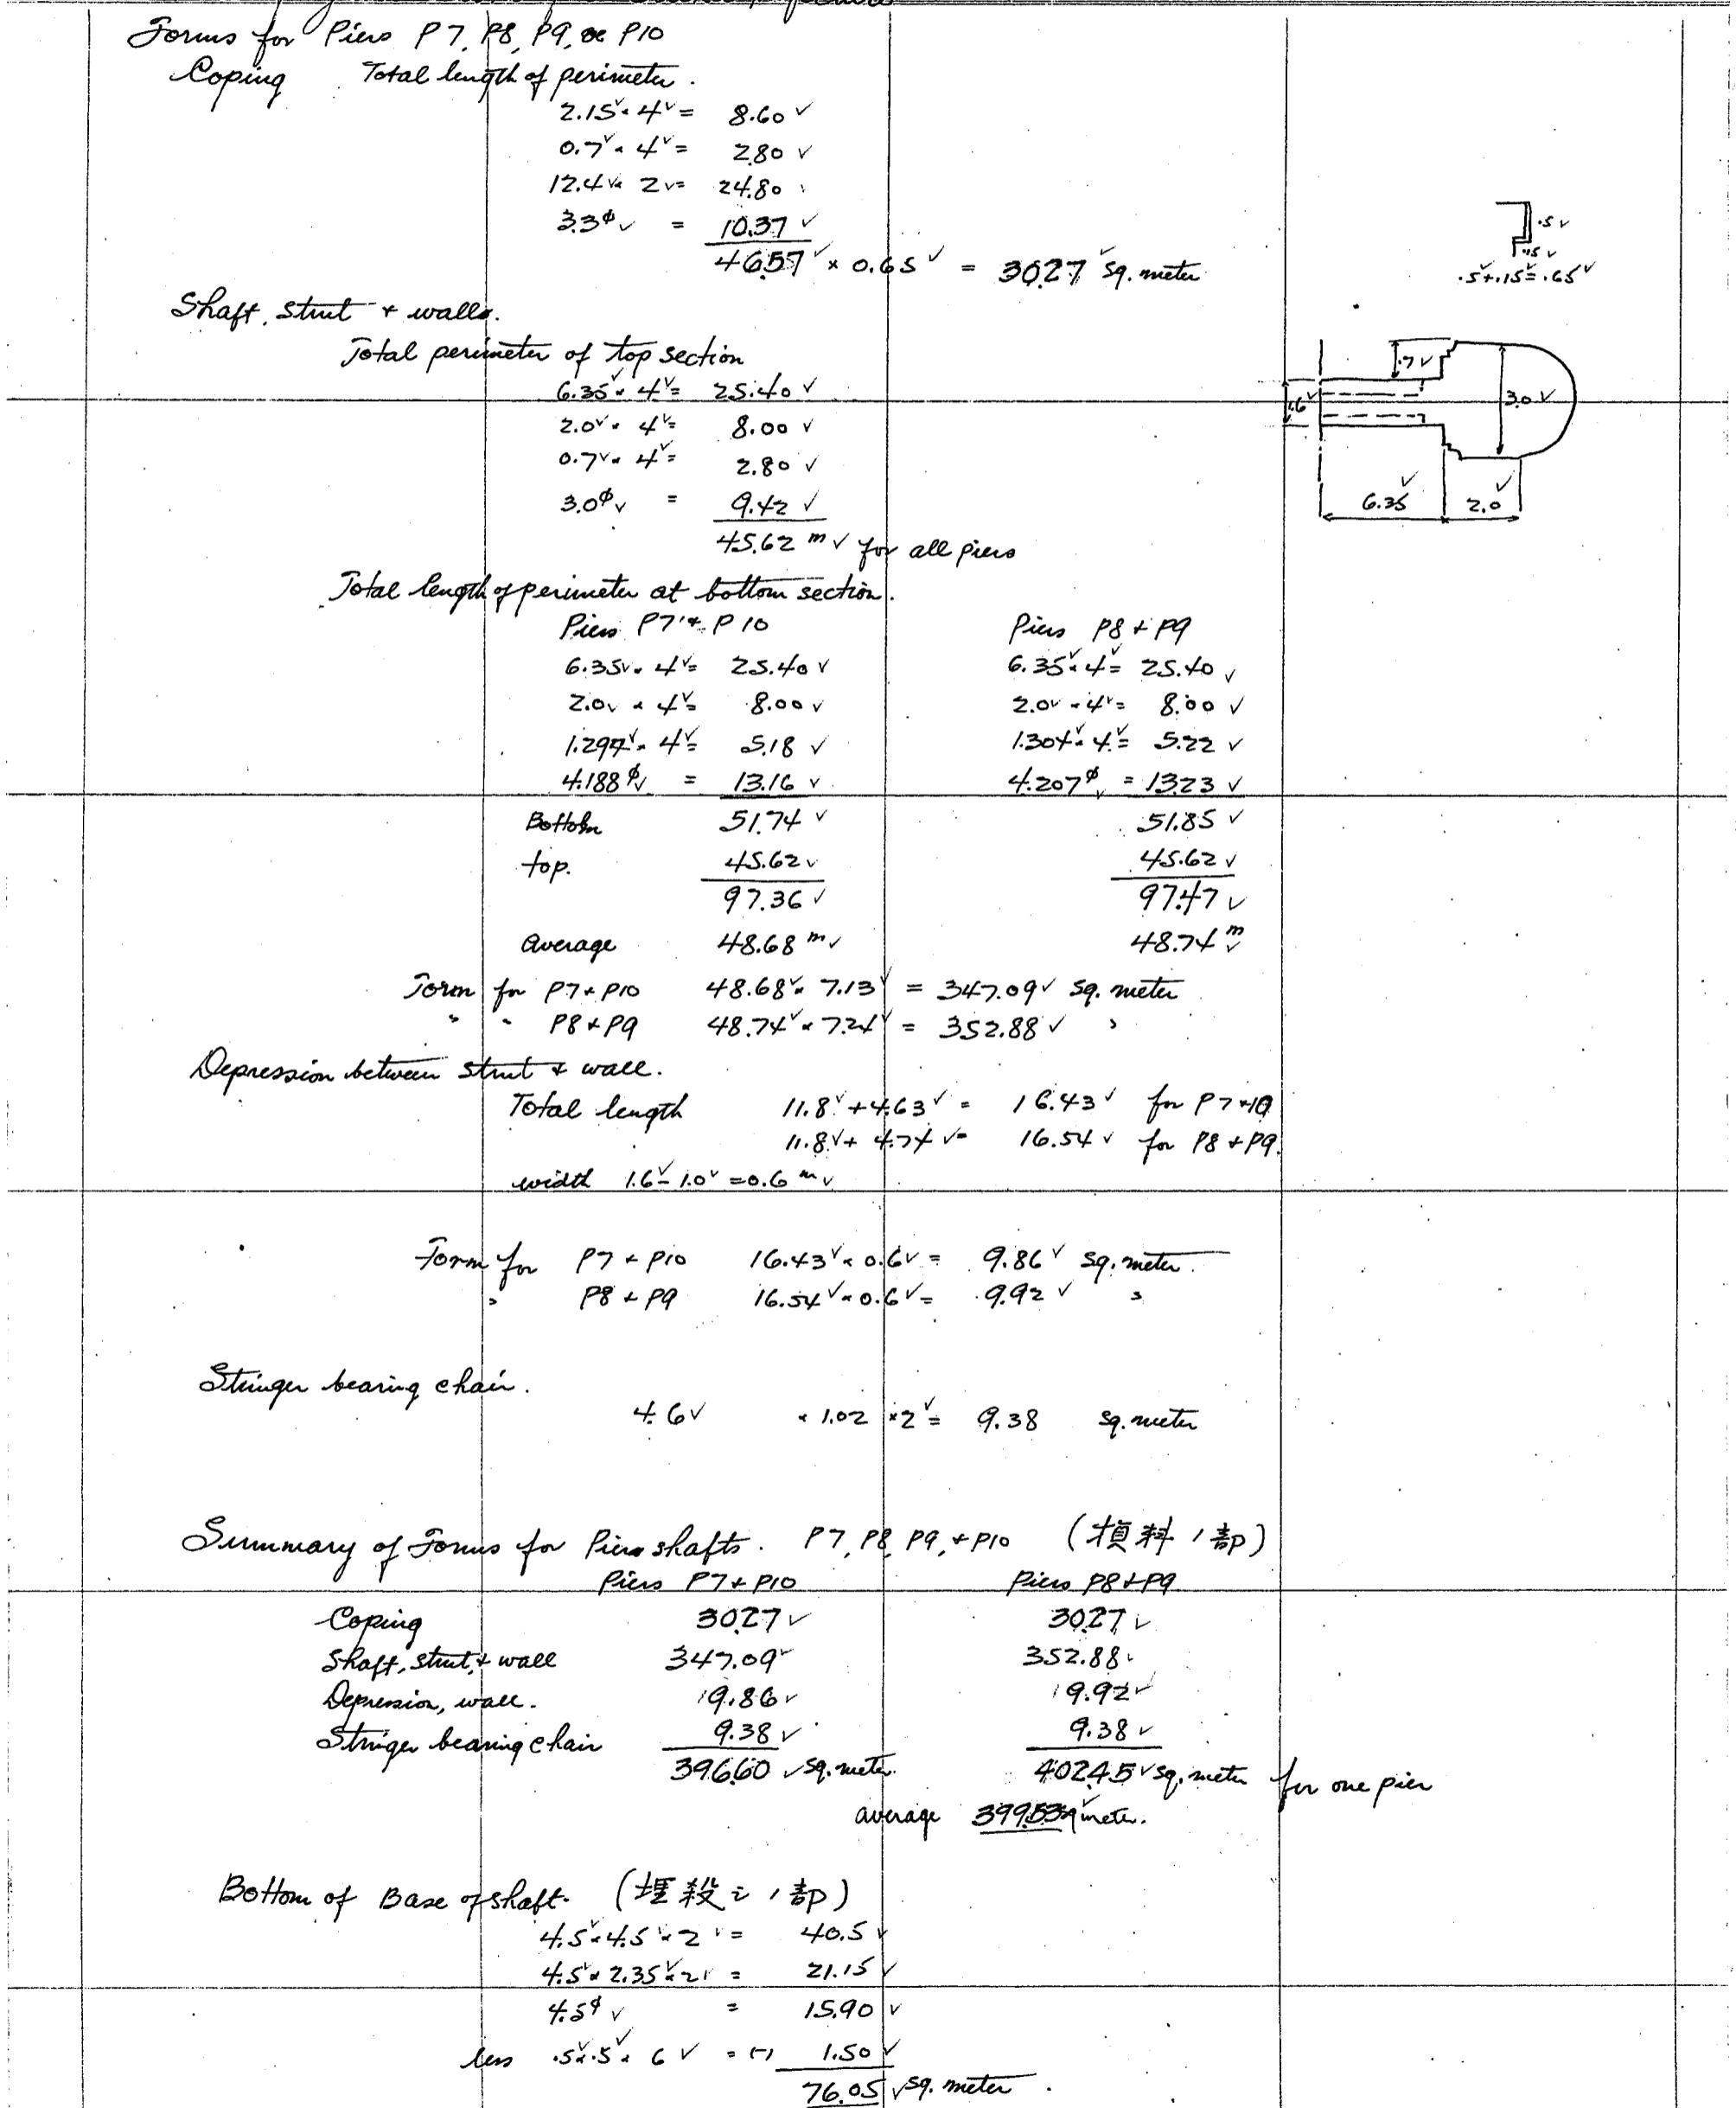 Forms for Piers P7, P8, P9, or P10
Coping Total length of perimeter.
2.15 × 4 = 8.60
0.7 × 4 = 2.80
12.4 × 2 = 24.80
3.3ϕ = 10.37
46.57 × 0.65 = 30.27 sq. meter
.5
.15
.5+.15=.65
Shaft, strut + walls.
Total perimeter of top section
6.35 × 4 = 25.40
2.0 × 4 = 8.00
0.7 × 4 = 2.80
3.0ϕ = 9.42
45.62 m for all piers
.7
1.6
3.0
6.35 2.0
Total length of perimeter at bottom section.
Piers P7 + P10 Piers P8 + P9
6.35 × 4 = 25.40 6.35 × 4 = 25.40
2.0 × 4 = 8.00 2.0 × 4 = 8.00
1.294 × 4 = 5.18 1.304 × 4 = 5.22
4.188ϕ = 13.16 4.207ϕ = 13.23
Bottom 51.74 51.85
top. 45.62 45.62
97.36 97.47
Average 48.68 m 48.74 m
Form for P7 + P10 48.68 × 7.13 = 347.09 sq. meter
" " P8 + P9 48.74 × 7.24 = 352.88 "
Depression between strut + wall.
Total length 11.8 + 4.63 = 16.43 for P7+10
11.8 + 4.74 = 16.54 for P8 + P9.
width 1.6 - 1.0 = 0.6 m
Form for P7 + P10 16.43 × 0.6 = 9.86 sq. meter.
" P8 + P9 16.54 × 0.6 = 9.92 "
Stringer bearing chair.
4.6 × 1.02 × 2 = 9.38 sq. meter
Summary of Forms for Piers shafts. P7, P8, P9, + P10 (損料ノ部)
Piers P7 + P10 Piers P8 + P9
Coping 30.27 30.27
Shaft, strut, + wall 347.09 352.88
Depression, wall. 9.86 9.92
Stringer bearing chair 9.38 9.38
396.60 sq. meter. 402.45 sq. meter for one pier
average 399.53 sq meter.
Bottom of Base of shaft. (埋殺シノ部)
4.5 × 4.5 × 2 = 40.5
4.5 × 2.35 × 2 = 21.15
4.5ϕ = 15.90
less .5 × .5 × 6 = (-) 1.50
76.05 sq. meter.